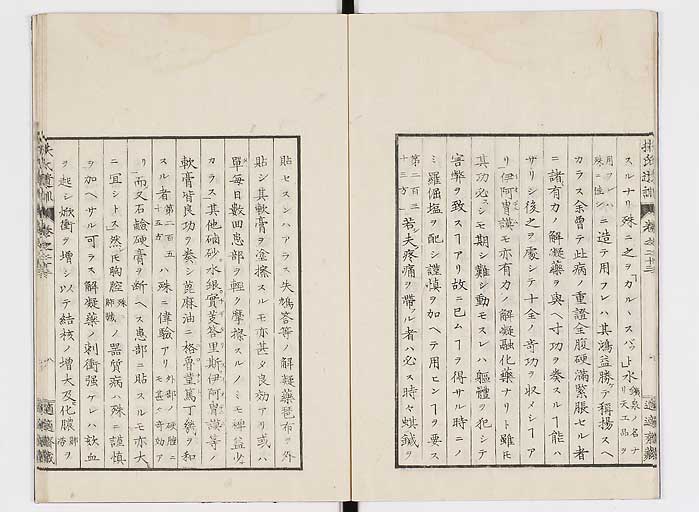 スルナリ殊ニ之ヲ「カルハスバット」水鑛泉ノ名ナリ天工品ヲ
用フレハ殊ニ佳シニ造テ用フレハ其鴻益勝テ稱揚スヘ
カラス余曽テ此病ノ重證全腹硬滿緊脹セル者
ニ諸有力ノ解凝藥ヲ與ヘ寸功ヲ奏スルヿ能ハ
サリシ後之ヲ處シテ十全ノ奇功ヲ收メシヿア
リ伊阿胄謨モ亦有力ノ解凝融化藥ナリト雖モ
其功必シモ期シ難シ動モスレハ軀體ヲ犯シテ
害弊ヲ致スヿアリ故ニ已ムヿヲ得サル時ニノ
ミ羅倔塩ヲ配シ謹慎ヲ加ヘテ用ヒンヿヲ要ス
第二百三十三方若夫疼痛ヲ帶フル者ハ必ス時々蜞鍼ヲ
貼セスンハアラス失鳩答等ノ解凝藥琶布ヲ外
貼シ其軟膏ヲ塗擦スルモ亦甚タ良効アリ或ハ
單毎日數回患部ヲ輕ク摩擦スルノミモ裨益少
カラス其他硇砂水銀實芰答里斯伊阿胄謨等ノ
軟膏皆良功ヲ奏シ蓖麻油ニ格魯堂篤丁幾ヲ和
スル者第二百五十五方ハ殊ニ偉驗アリ外部ノ硬腫ニモ甚タ奇効ア
リ而又石鹼硬膏ヲ斷ヘス患部ニ貼スルモ亦大
ニ冝シトス然㆑𪜈胸腔殊肺臓ノ器質病ハ殊ニ謹慎
ヲ加ヘサル可ラス解凝藥ノ刺衝强ケレハ欬血
ヲ起シ焮衝ヲ增シ以テ結核ノ增大及化膿肺ヲ